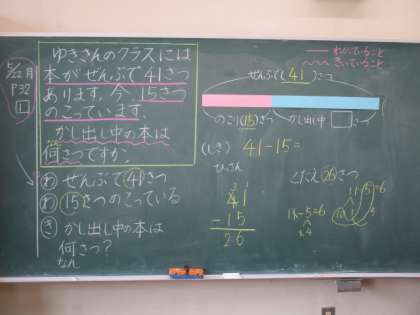 5/22月
P32
□
ゆきさんのクラスには
本がぜんぶで41さつ
あります。今、15さつ
のこっています。
かし出し中の本は
何さつですか。
わ ぜんぶで41さつ
わ 15さつのこっている
き かし出し中の本は
何さつ?
なん
わかっていること
きいていること
ぜんぶで(41)さつ
のこり(15)さつ
かし出し中□さつ
(しき) 41-15=
ひっさん
41
-15
26
こたえ26さつ
11-5=6